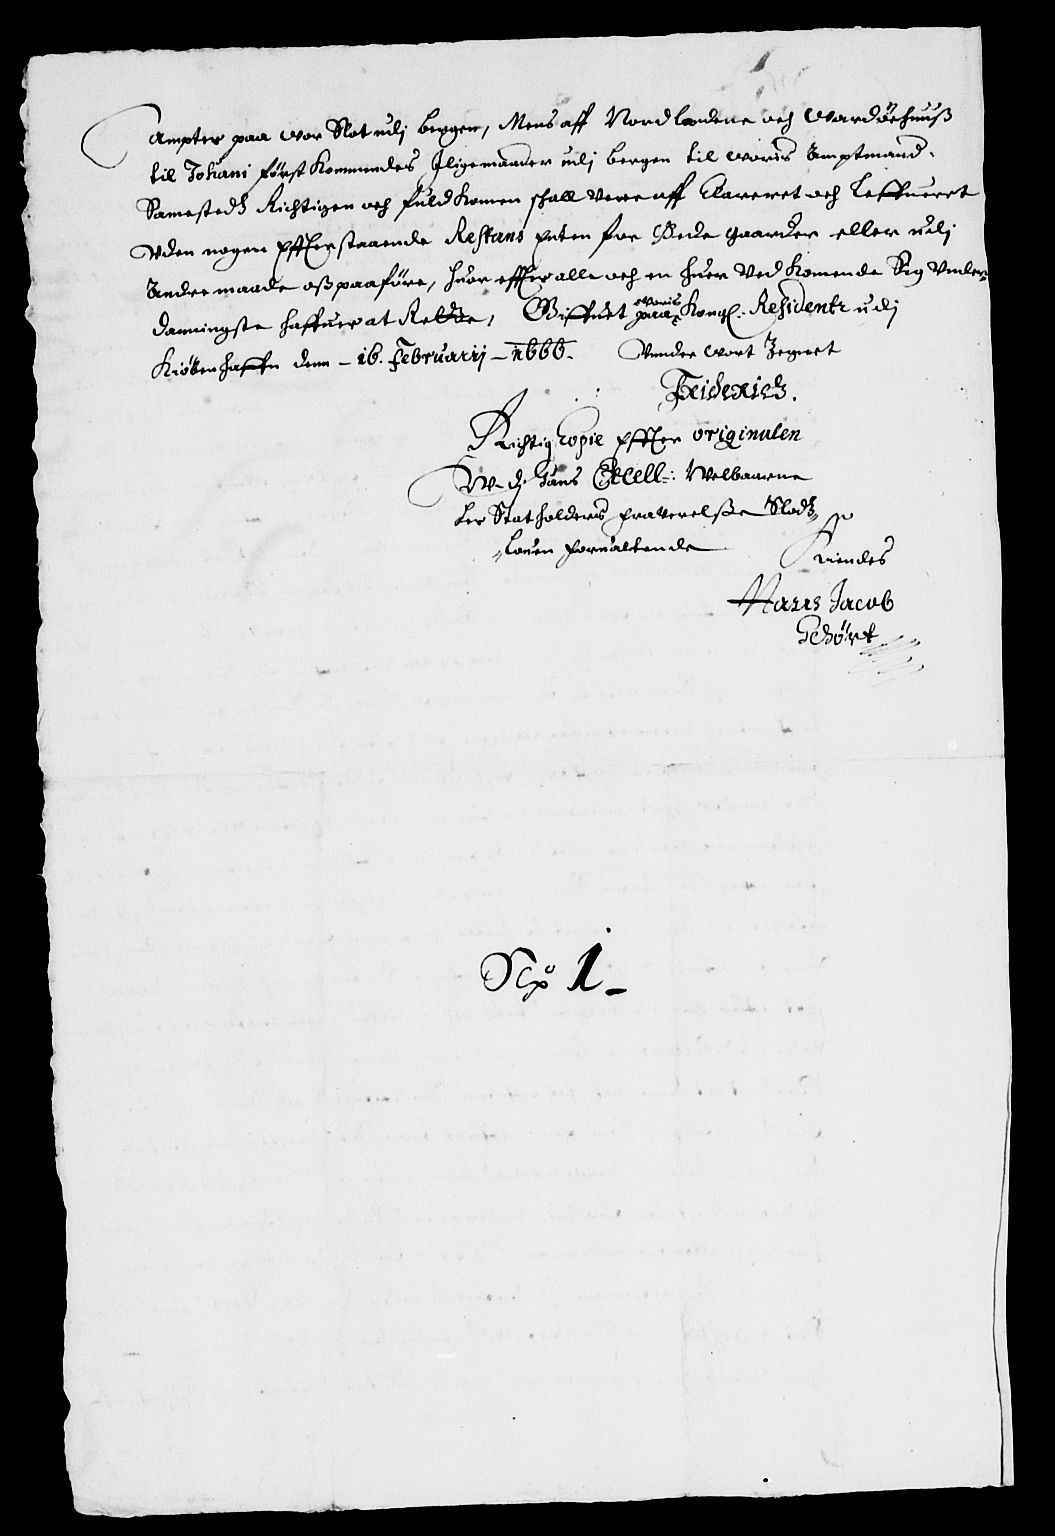 Ampter paa vor Slot udj bergen, Mens aff Nordlandene och Wardöehuuss
til Johani först kommendes Jligemaader udj bergen til voris Amptmand
Samestedz Richtigen och fuldkomen schall vere aff Clareret och Leffueret
Uden nogen Effterstaaende Restans Enten for Øede gaarder eller udj
Andre maade oss paaföre, huor effter alle och en huer Ved kommende Sig Under-
danningste haffuer at Rette, Giffuet paa voris Kongl. Residentz udj
Kiöbenhaffn denn - 16. Februarij - 1666. Under vort Zegnet
Friderich.
Richtig Copie Effter originalen
W- dj Hans Excell: Welbaarne
her Statholders fraverelsse Slodz
Louen forvaltende
Kiendes
Hans Jacob
Schört
No 1